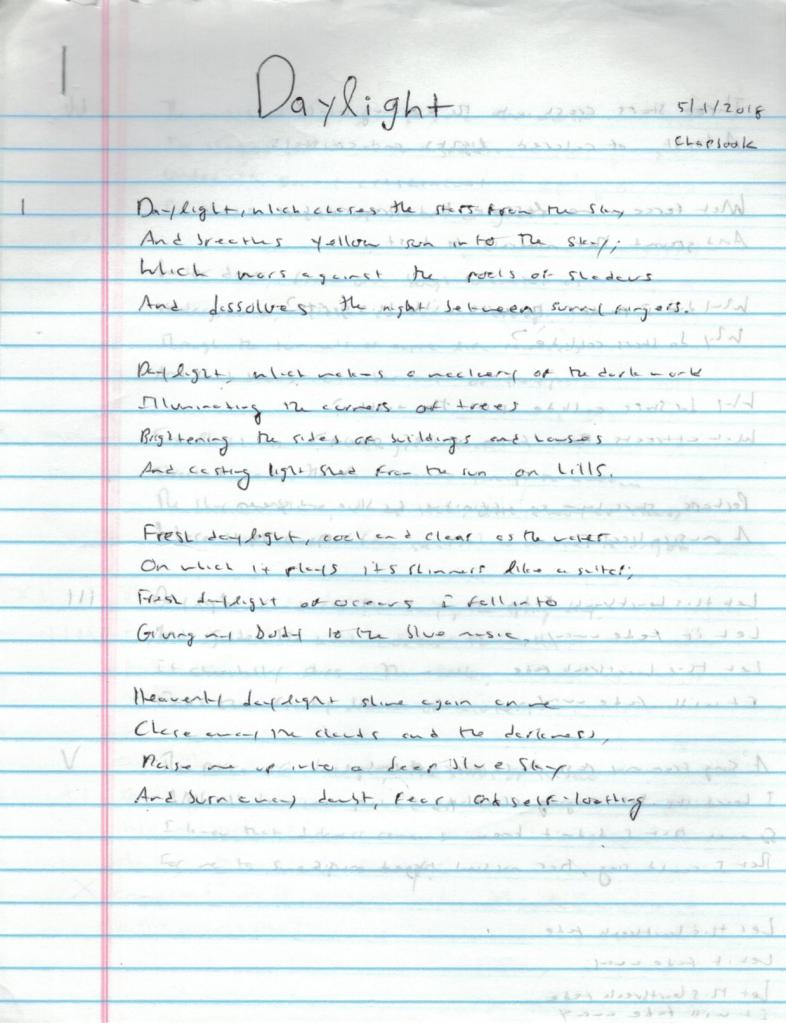 1
Daylight
5/1/2018
Chapbook
1
Daylight, which chases the stars from the sky
And breathes yellow sun into the sky;
Which wars against the pools of shadows
And dissolves the night between sunny fingers.
Daylight, which makes a of the dark
Illuminating the corners of trees
Brightening the sides of buildings and houses
And casting light shed from the sun on hills.
Fresh daylight, cool and clear as the water
On which it plays its shimmers like a guitar;
Fresh daylight of oceans I fall into
Giving my body to the blue music.
Heavenly daylight shine again on me
Chase away the clouds and the darkness,
Raise me up into a deep blue sky
And burn away doubt, fear and self-loathing